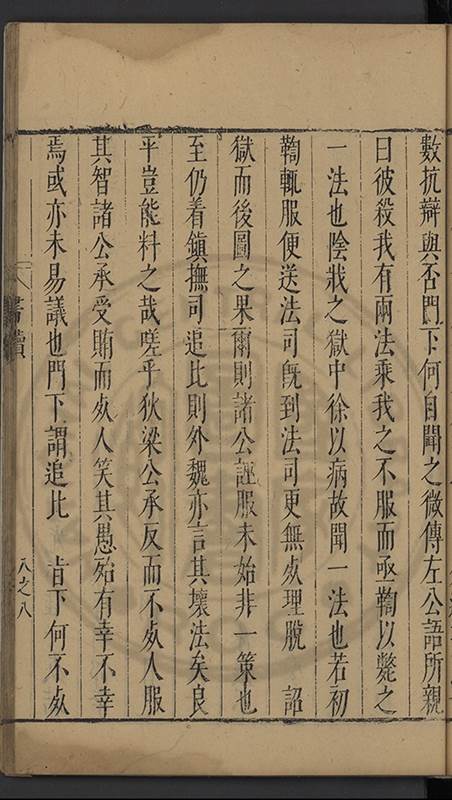 數抗辯與否門下何自聞之微傳左公語所親
曰彼殺我有兩法乘我之不服而亟鞫以斃之
一法也陰戕之獄中徐以病故聞一法也若初
鞫輒服便送法司旣到法司更無處理脫　詔
獄而後圖之果爾則諸公誣服未始非一策也
至仍着鎮撫司追比則外魏亦言其壞法矣良
平豈能料之哉嗟乎狄梁公承反而不死人服
其智諸公承受賄而死人笑其愚殆有幸不幸
焉或亦未易議也門下謂追比　旨下何不死
書牘
八之八